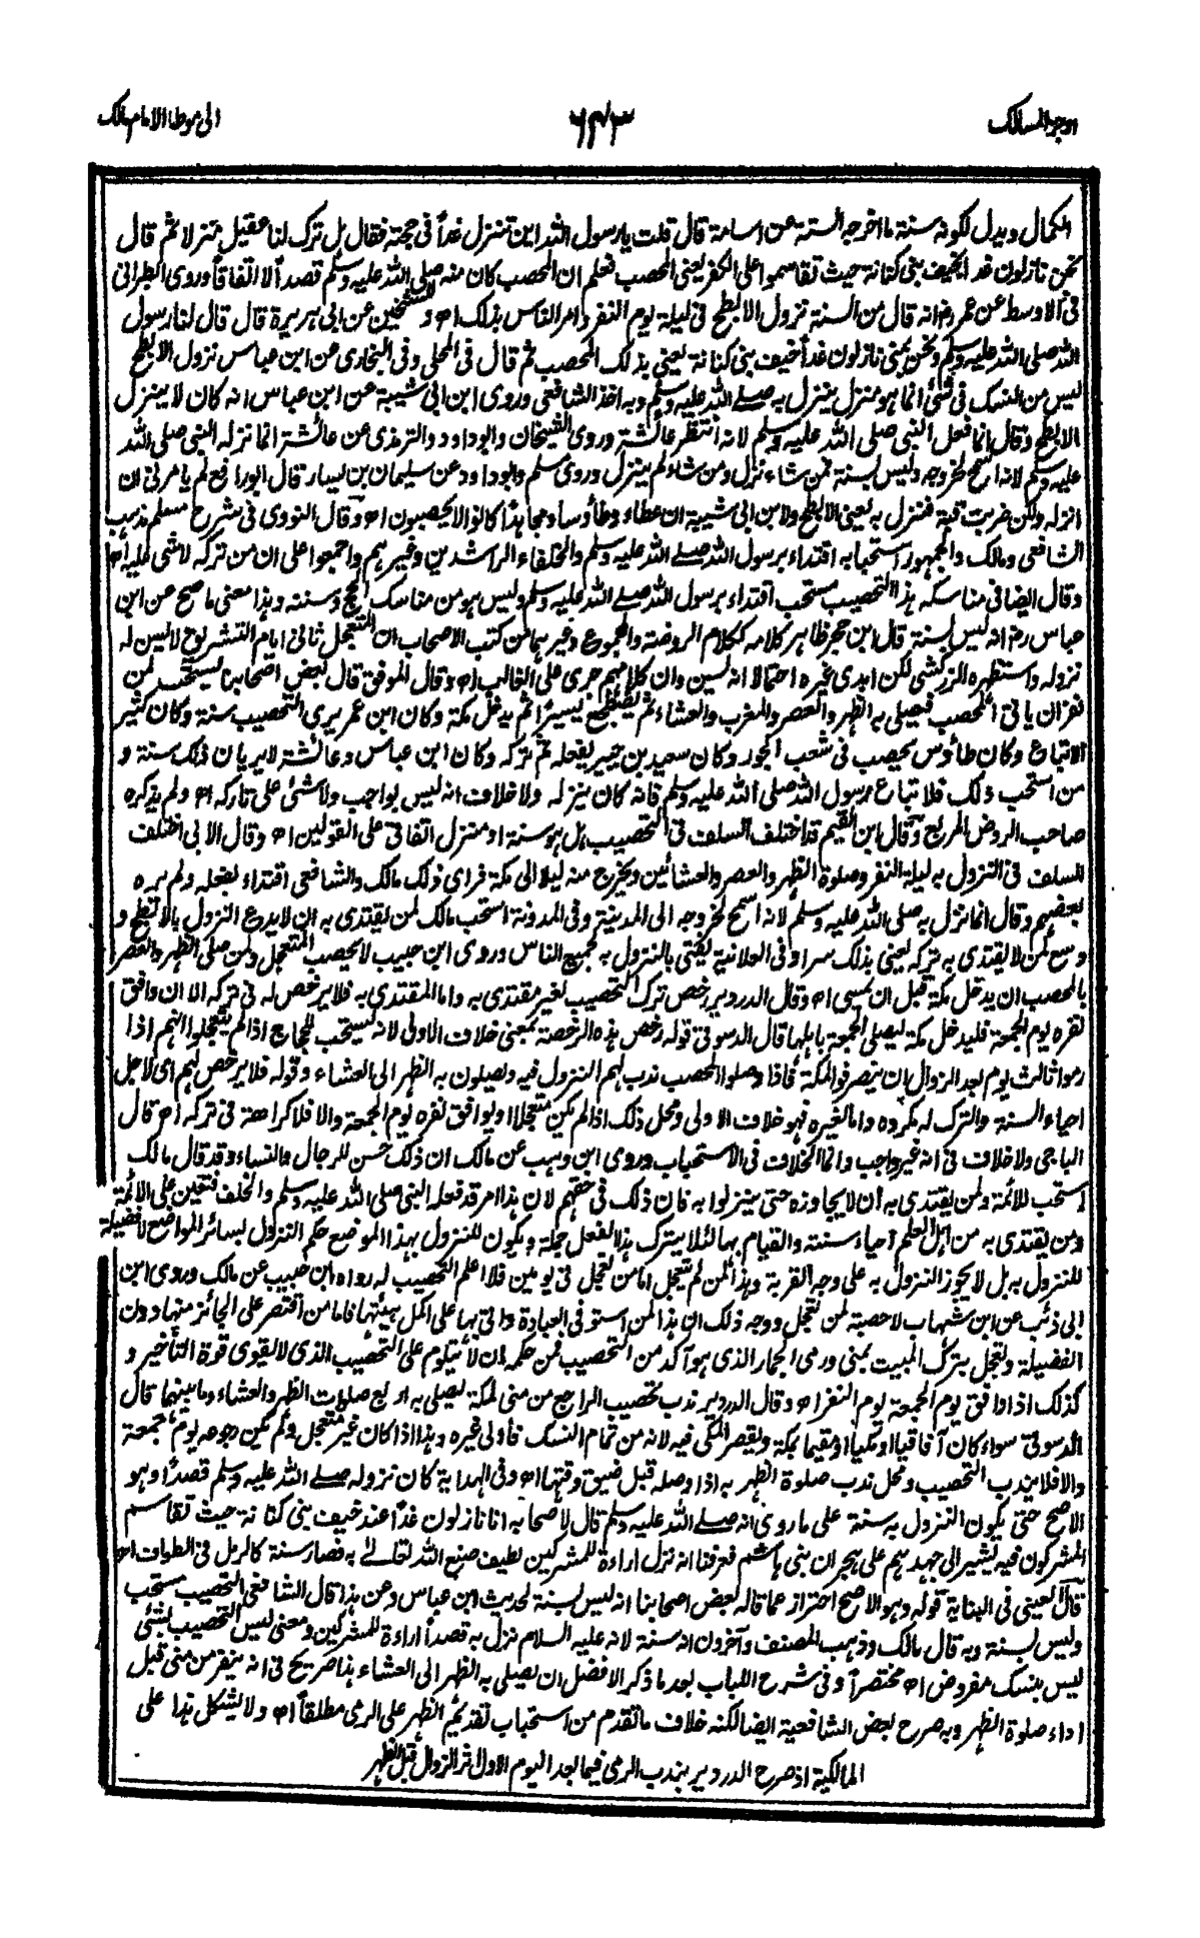 اوجز المسالک
٦٤٣
الی موطا الامام مالک
الکمال ویدل لکونه سنة ما اخرجه الستة عن اسامة قال قلت یا رسول الله این تنزل غداً فی حجته فقال هل ترک لنا عقیل منزلا ثم قال
نحن نازلون غدا بخیف بنی کنانة حیث تقاسموا علی الکفر یعنی المحصب فعلم ان المحصب کان منه صلی الله علیه وسلم قصداً لا اتفاقاً وروی الطبرانی
فی الاوسط عن عمر رض انه قال من السنة نزول الابطح فی لیلة یوم النفر وامر الناس بذلک اھ وللشیخین عن ابی هریرة قال قال لنا رسول
الله صلی الله علیه وسلم ونحن بمنی نازلون غداً خیف بنی کنانة یعنی بذلک المحصب ثم قال فی المحلی وفی البخاری عن ابن عباس نزول الابطح
لیس من النسک فی شئ انما هو منزل ینزل به صلے الله علیه وسلم وبه اخذ الشافعی وروی ابن ابی شیبة عن ابن عباس انه کان لا ینزل
الابطح وقال انما فعل النبی صلی الله علیه وسلم لانه انتظر عائشة وروی الشیخان وابو داود والترمذی عن عائشة انما نزله النبی صلی الله
علیه وسلم لانه اسمح لخروجه ولیس بسنة فمن شاء نزل ومن شاء لم ینزل وروی مسلم وابو داود عن سلیمان بن یسار قال ابو رافع لم یامرنی ان
انزله ولکن ضربت قبة فنزل به یعنی الابطح ولابن ابی شیبة ان عطاء وطاؤسا ومجاهداً کانوا لا یحصبون اھ وقال النووی فی شرح مسلم مذهب
الشافعی ومالک والجمهور استحبابه اقتداء برسول الله صلے الله علیه وسلم والخلفاء الراشدین وغیرهم واجمعوا علی ان من ترکه لا شی علیه اھ
وقال ایضا فی مناسکه هذا التحصیب مستحب اقتداء برسول الله صلے الله علیه وسلم ولیس هو من مناسک الحج وسننه وهذا معنی ما صح عن ابن
عباس رض انه لیس بسنة قال ابن حجر ظاهر کلامه ککلام الروضة والمجموع وغیرهما من کتب الاصحاب ان المتعجل ثانی ایام التشریق لا یسن له
نزوله واستظهره الزرکشی لکن ابدی غیره احتمالا انه یسن وان کلامهم جری علی الغالب اھ وقال الموفق قال بعض اصحابنا یستحب لمن
نفر ان یاتی المحصب فیصلی به الظهر والعصر والمغرب والعشاء ثم یضطجع یسیراً ثم یدخل مکة وکان ابن عمر یری التحصیب سنة وکان کثیر
الاتباع وکان طاؤس یحصب فی شعب الجور وکان سعید بن جبیر یفعله ثم ترکه وکان ابن عباس وعائشة لا یریان ذلک سنة و
من استحب ذلک فلاتباع رسول الله صلی الله علیه وسلم فانه کان ینزله ولا خلاف انه لیس بواجب ولا شئ علی تارکه اھ ولم یذکره
صاحب الروض المربع وقال ابن القیم قد اختلف السلف فی التحصیب هل هو سنة او منزل اتفاق علی القولین اھ وقال الابی اختلف
السلف فی النزول به لیلة النفر وصلوة الظهر والعصر والعشائین ویخرج منه لیلا الی مکة فرای ذلک مالک والشافعی اقتداء بفعله ولم یره
بعضهم وقال انما نزل به صلی الله علیه وسلم لانه اسمح لخروجه الی المدینة وفی المدونة استحب مالک لمن یقتدی به ان لا یدع النزول بالابطح و
وسع لمن لا یقتدی به ترکه یعنی بذلک سرا وفی العلانیة یفتی بالنزول به لجمیع الناس وروی ابن حبیب لا یحصب المتعجل ولمن صلی الظهر والعصر
بالمحصب ان یدخل مکة قبل ان یمسی اھ وقال الدردیر رخص ترک التحصیب لغیر مقتدی به واما المقتدی به فلا یرخص له فی ترکه الا ان وافق
نفره یوم الجمعة فلیدخل مکة لیصلی الجمعة باهلها قال الدسوقی قوله رخص هذه الرخصة بمعنی خلاف الاولی لانه یستحب للحجاج اذا لم یتعجلوا انهم اذا
رموا ثالث یوم بعد الزوال ان ینصرفوا لمکة فاذا وصلوا المحصب ندب لهم النزول فیه ویصلون به الظهر الی العشاء وقوله فلا یرخص لهم ای لاجل
احیاء السنة والترک له مکروه واما لغیره فهو خلاف الاولی ومحل ذلک اذا لم یکن متعجلا او یوافق نفره یوم الجمعة والا فلا کراهة فی ترکه اھ قال
الباجی ولا خلاف فی انه غیر واجب وانما الخلاف فی الاستحباب وروی ابن وهب عن مالک ان ذلک حسن للرجال والنساء وقد قال مالک
استحب للائمة ولمن یقتدی به ان لا یجاوزه حتی ینزلوا به فان ذلک فی حقهم لان هذا امر قد فعله النبی صلی الله علیه وسلم والخلف فتعین علی الائمة
ومن یقتدی به من اهل العلم احیاء سننه والقیام بها لئلا یترک هذا الفعل جملة ویکون للنزول بهذا الموضع حکم النزول بسائر المواضع لا فضیلة
للنزول به بل لا یجوز النزول به علی وجه القربة وهذا لمن لم یتعجل اما من تعجل فی یومین فلا اعلم التحصیب له رواه ابن حبیب عن مالک وروی ابن
ابی ذئب عن ابن شهاب لا حصبة لمن تعجل ووجه ذلک ان هذا لمن استوفی العبادة واتی بها علی اکمل هیئتها فاما من اقتصر علی الجائز منها ودون
الفضیلة وتعجل بترک المبیت بمنی ورمی الجمار الذی هو آکد من التحصیب فمن حکمه ان لا یتلوم علی التحصیب الذی لا یقوی قوة التأخیر و
کذلک اذا وافق یوم الجمعة یوم النفر اھ وقال الدردیر ندب تحصیب الراجع من منی لمکة لیصلی به اربع صلوات الظهر والعشاء وما بینهما قال
الدسوقی سواء کان آفاقیا او مکیا او مقیما بمکة ویقصر المکی فیه لانه من تمام النسک فأولی غیره وهذا اذا کان غیر متعجل ولم یکن رجوعه یوم جمعة
والا فلا یندب التحصیب ومحل ندب صلوة الظهر به اذا وصله قبل ضیق وقتها اھ وفی الهدایة کان نزوله صلے الله علیه وسلم قصداً وهو
الاصح حتی یکون النزول به سنة علی ما روی انه صلے الله علیه وسلم قال لاصحابه انا نازلون غداً عند خیف بنی کنانة حیث تقاسم
المشرکون فیه یشیر الی جهدهم علی هجران بنی هاشم فعرفنا انه نزل اراءة للمشرکین لطیف صنع الله تعالےٰ به فصار سنة کالرمل فی الطواف اھ
قال العینی فی البنایة قوله وهو الاصح احتراز عما قاله بعض اصحابنا انه لیس بسنة لحدیث ابن عباس وعن هذا قال الشافعی التحصیب مستحب
ولیس بسنة وبه قال مالک وذهب المصنف وآخرون انه سنة لانه علیه السلام نزل به قصداً اراءة للمشرکین ومعنی لیس التحصیب بشئ
لیس بنسک مفروض اھ مختصراً وفی شرح اللباب بعد ما ذکر الافضل ان یصلی به الظهر الی العشاء هذا صریح فی انه ینفر من منی قبل
اداء صلوة الظهر وبه صرح بعض الشافعیة ایضا لکنه خلاف ما تقدم من استحباب تقدیم الظهر علی الرمی مطلقاً اھ ولا یشکل هذا علی
المالکیة اذ صرح الدردیر بندب الرمی فیما بعد الیوم الاول اثر الزوال قبل الظهر